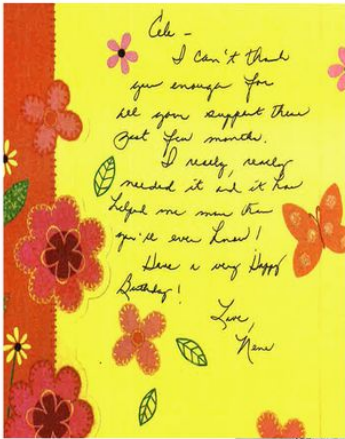 Cele -
I can't thank
you enough for
all your support these
past few months.
I really, really
needed it and it has
helped me more than
you'll ever know!
Have a very Happy
Birthday!
Love,
Nene